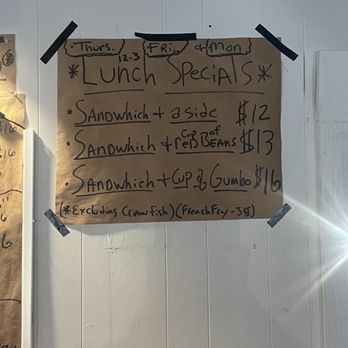 Thurs. Fri. & Mon
12-3
*Lunch Specials*
• Sandwhich + a side $12
• Sandwhich & cup of Red Beans $13
• Sandwhich + cup of Gumbo $16
(*Excluding Crawfish) (French Fry -3$)